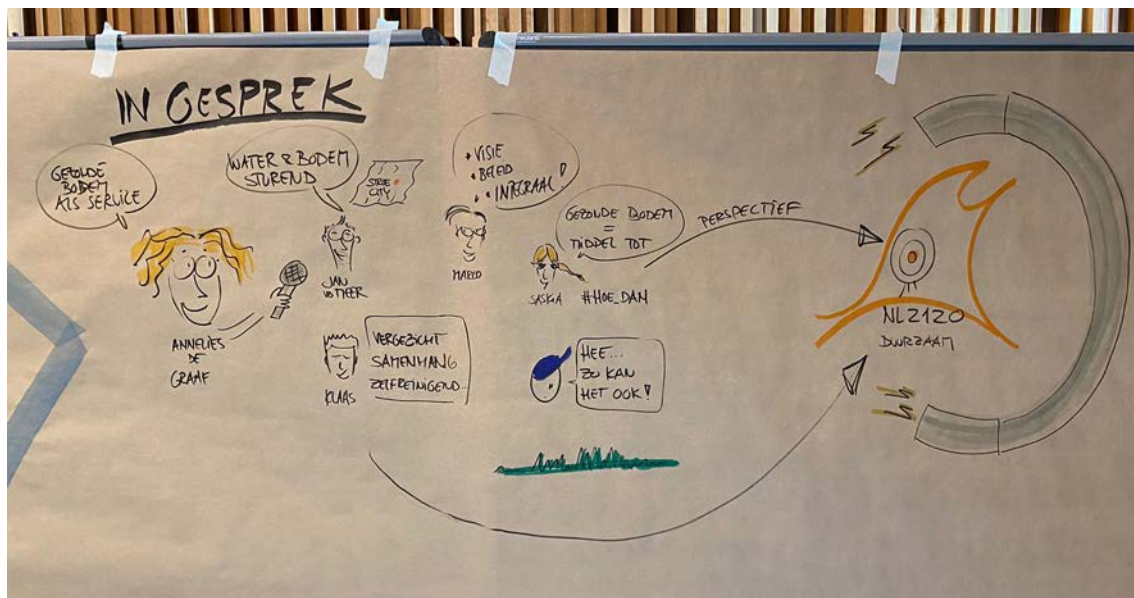 IN GESPREK
GEZONDE
BODEM
ALS SERVICE
ANNELIES
DE
GRAAF
WATER & BODEM
STUREND
CITY
JAN
MEER
• VISIE
• BELEID
• INTEGRAAL!
MARCO
GEZONDE BODEM
=
MIDDEL TOT
SASKIA
#HOE_DAN
PERSPECTIEF
KLAAS
VERGEZICHT
SAMENHANG
ZELFREINIGEND...
HEE...
ZO KAN
HET OOK!
NL2120
DUURZAAM